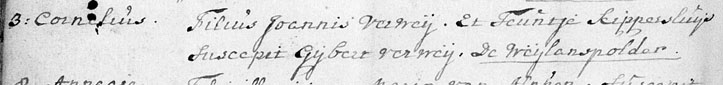 3: Cornelius. Filius Joannis Verweij. Et Teuntje Rippersluijs
suscepit Gijbert verweij. De Weijlanspolder.